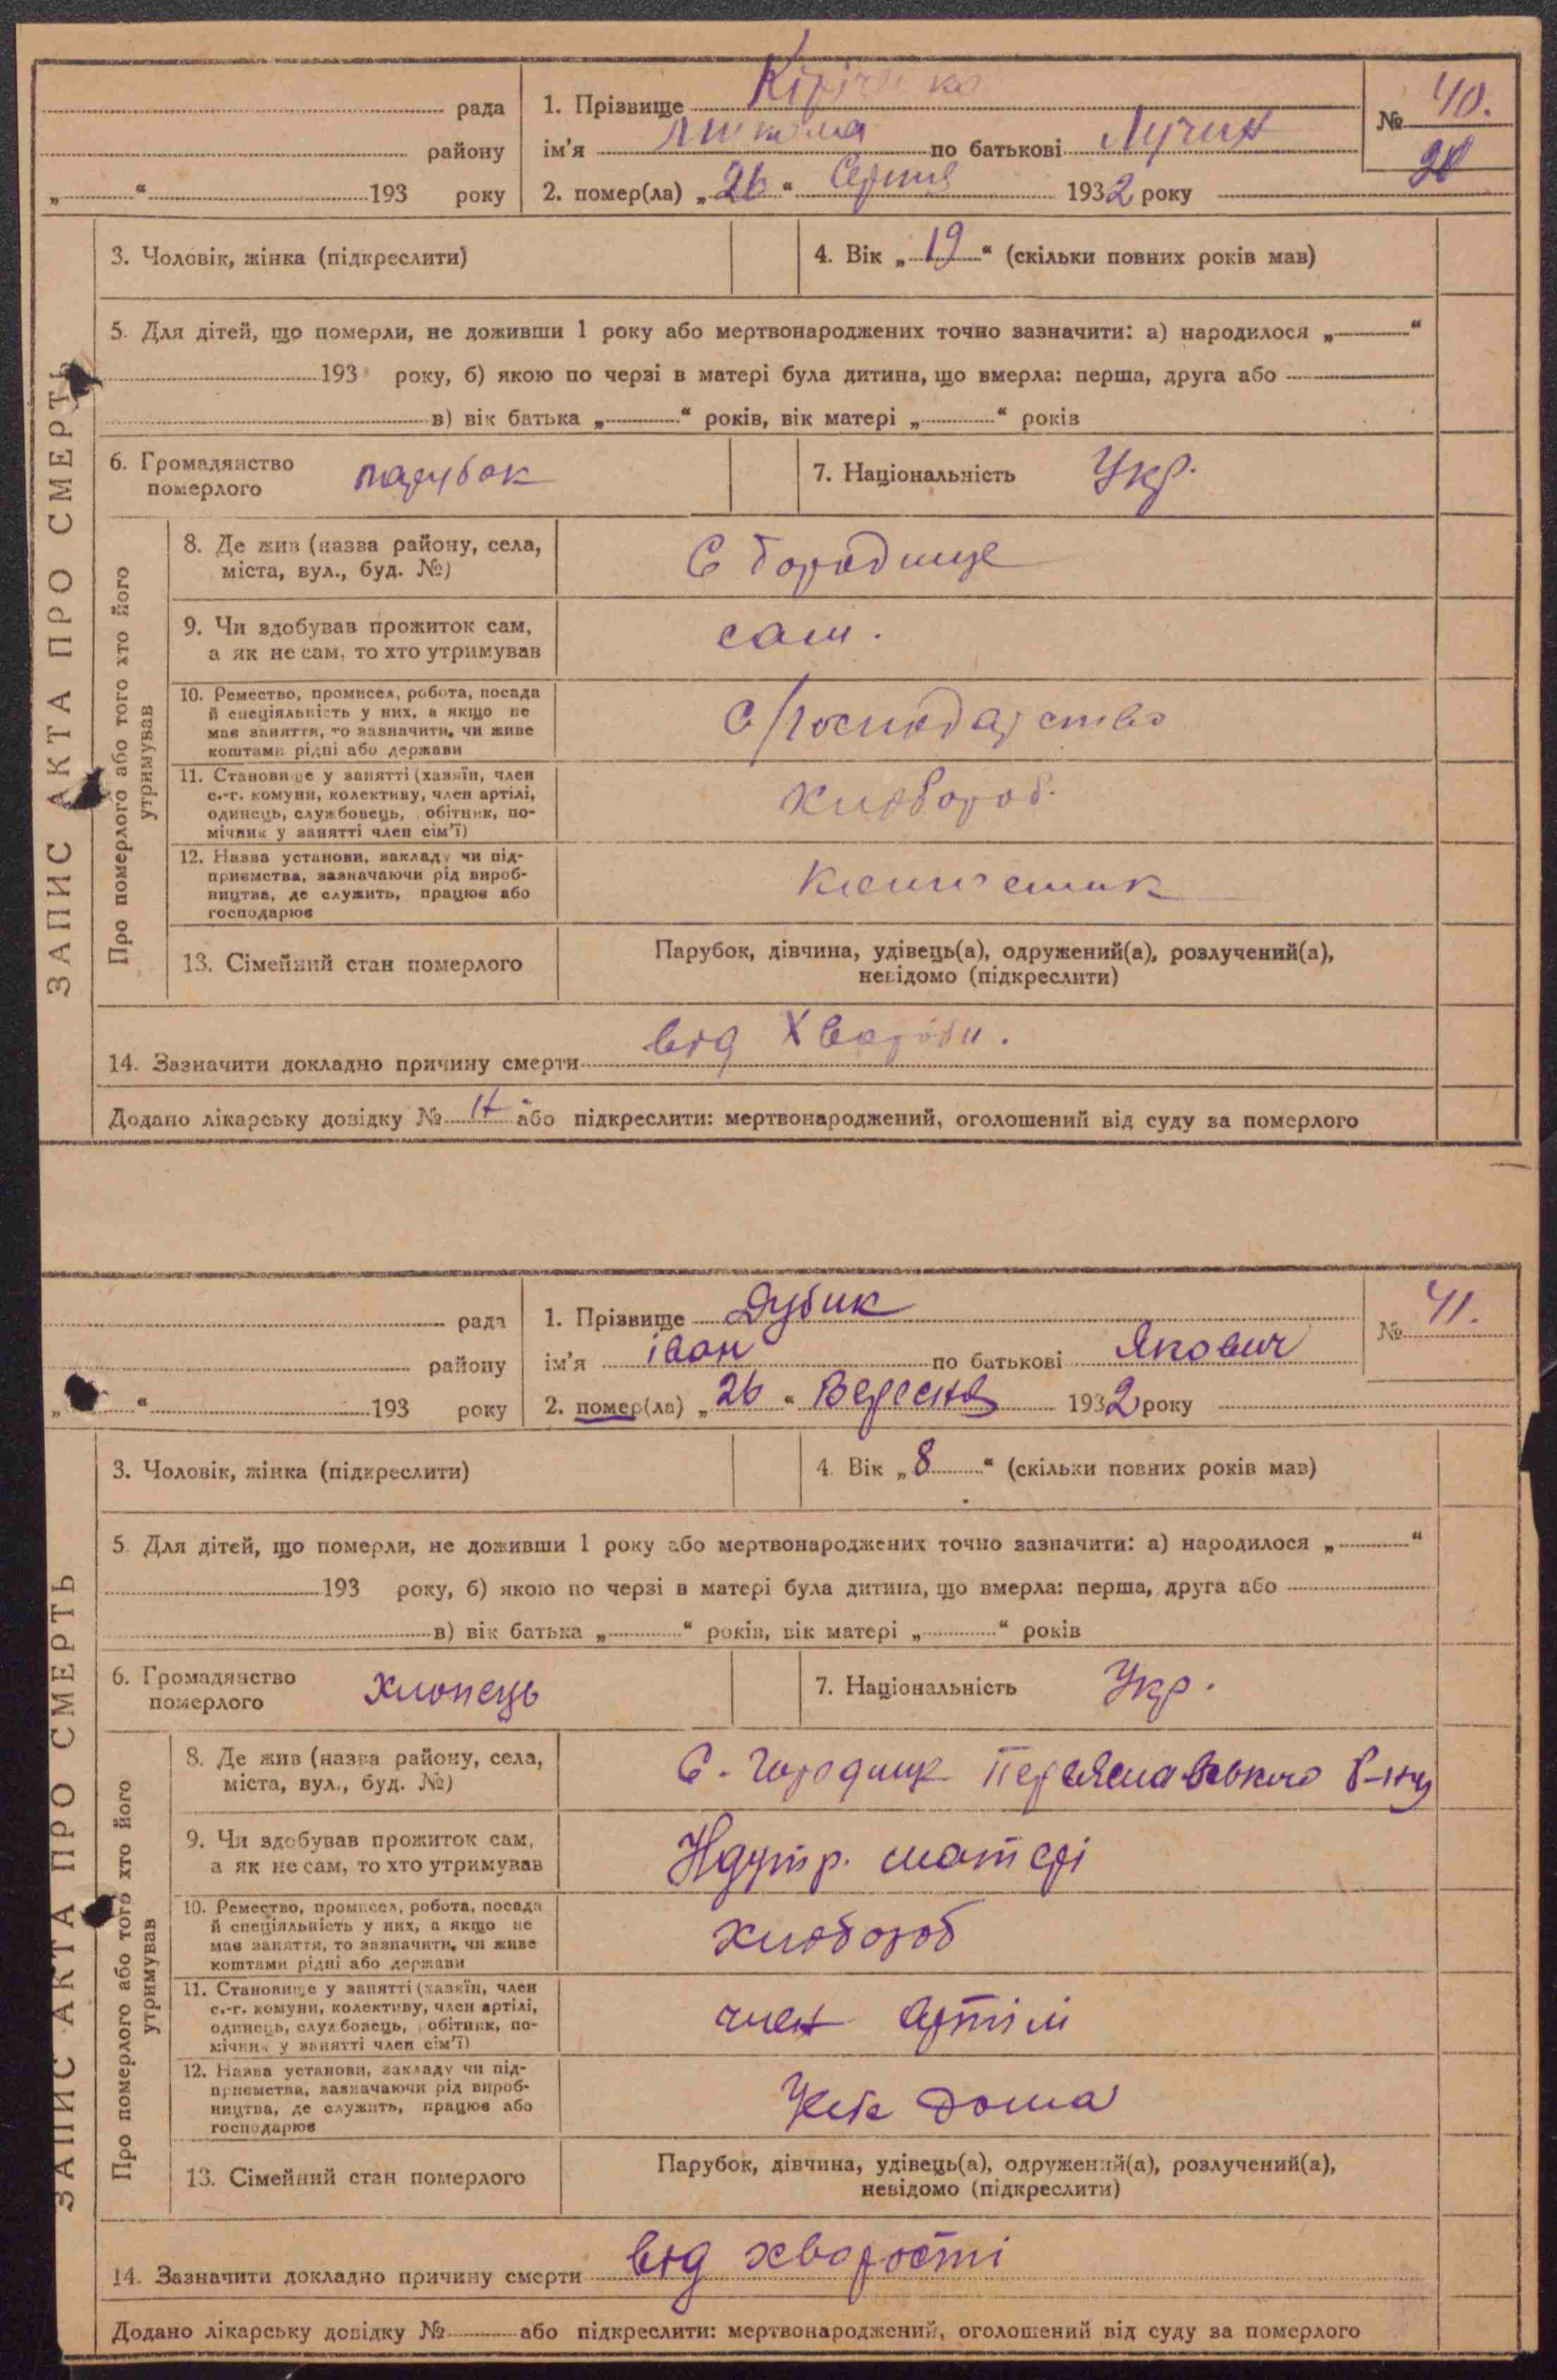 рада
району
„ “ 193 року
1. Прізвище
ім'я Микола по батькові
2. помер(ла) „26“ Серпня 1932 року
№ 40.
3. Чоловік, жінка (підкреслити)
4. Вік „19“ (скільки повних років мав)
5. Для дітей, що померли, не доживши 1 року або мертвонароджених точно зазначити: а) народилося „ “
193 року, б) якою по черзі в матері була дитина, що вмерла: перша, друга або
в) вік батька „ “ років, вік матері „ “ років
6. Громадянство
померлого парубок
7. Національність Укр.
ЗАПИС АКТА ПРО СМЕРТЬ
Про померлого або того хто його
утримував
8. Де жив (назва району, села,
міста, вул., буд. №)
С
9. Чи здобував прожиток сам,
а як не сам, то хто утримував
сам.
10. Ремество, промисел, робота, посада
й спеціяльність у них, а якщо не
має заняття, то зазначити, чи живе
коштами рідні або держави
С/господарство
11. Становище у занятті (хазяїн, член
с.-г. комуни, колективу, член артілі,
одинець, службовець, обітник, по-
мічник у занятті член сім'ї)
хлібороб.
12. Назва установи, закладу чи під-
приємства, зазначаючи рід вироб-
ництва, де служить, працює або
господарює
13. Сімейний стан померлого
Парубок, дівчина, удівець(а), одружений(а), розлучений(а),
невідомо (підкреслити)
14. Зазначити докладно причину смерти від хвороби.
Додано лікарську довідку № або підкреслити: мертвонароджений, оголошений від суду за померлого
рада
району
„ “ 193 року
1. Прізвище Дубик
ім'я іван по батькові Якович
2. помер(ла) „26“ Вересня 1932 року
№ 41.
3. Чоловік, жінка (підкреслити)
4. Вік „8“ (скільки повних років мав)
5. Для дітей, що померли, не доживши 1 року або мертвонароджених точно зазначити: а) народилося „ “
193 року, б) якою по черзі в матері була дитина, що вмерла: перша, друга або
в) вік батька „ “ років, вік матері „ “ років
6. Громадянство
померлого хлопець
7. Національність Укр.
ЗАПИС АКТА ПРО СМЕРТЬ
Про померлого або того хто його
утримував
8. Де жив (назва району, села,
міста, вул., буд. №)
С. Переяславського Р-ну
9. Чи здобував прожиток сам,
а як не сам, то хто утримував
матері
10. Ремество, промисел, робота, посада
й спеціяльність у них, а якщо не
має заняття, то зазначити, чи живе
коштами рідні або держави
хлібороб
11. Становище у занятті (хазяїн, член
с.-г. комуни, колективу, член артілі,
одинець, службовець, обітник, по-
мічник у занятті член сім'ї)
член артілі
12. Назва установи, закладу чи під-
приємства, зазначаючи рід вироб-
ництва, де служить, працює або
господарює
дома
13. Сімейний стан померлого
Парубок, дівчина, удівець(а), одружений(а), розлучений(а),
невідомо (підкреслити)
14. Зазначити докладно причину смерти від хворості
Додано лікарську довідку № або підкреслити: мертвонароджений, оголошений від суду за померлого